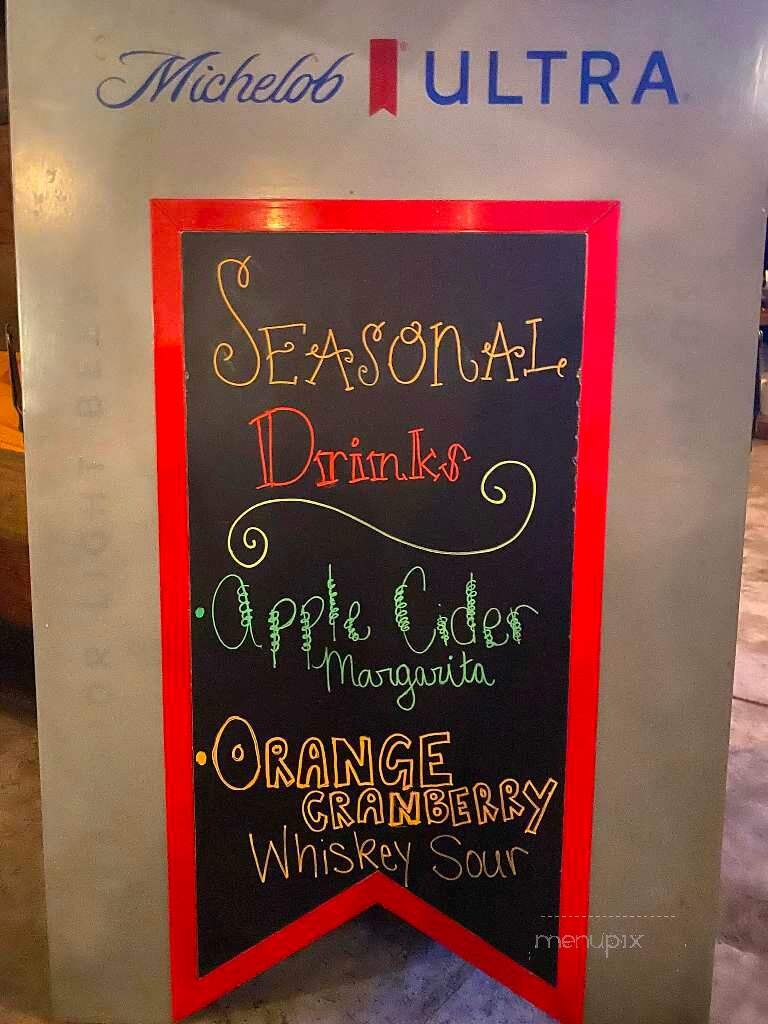 Michelob ULTRA
SEASONAL
Drinks
• Apple Cider
Margarita
• ORANGE
CRANBERRY
Whiskey Sour
menupix